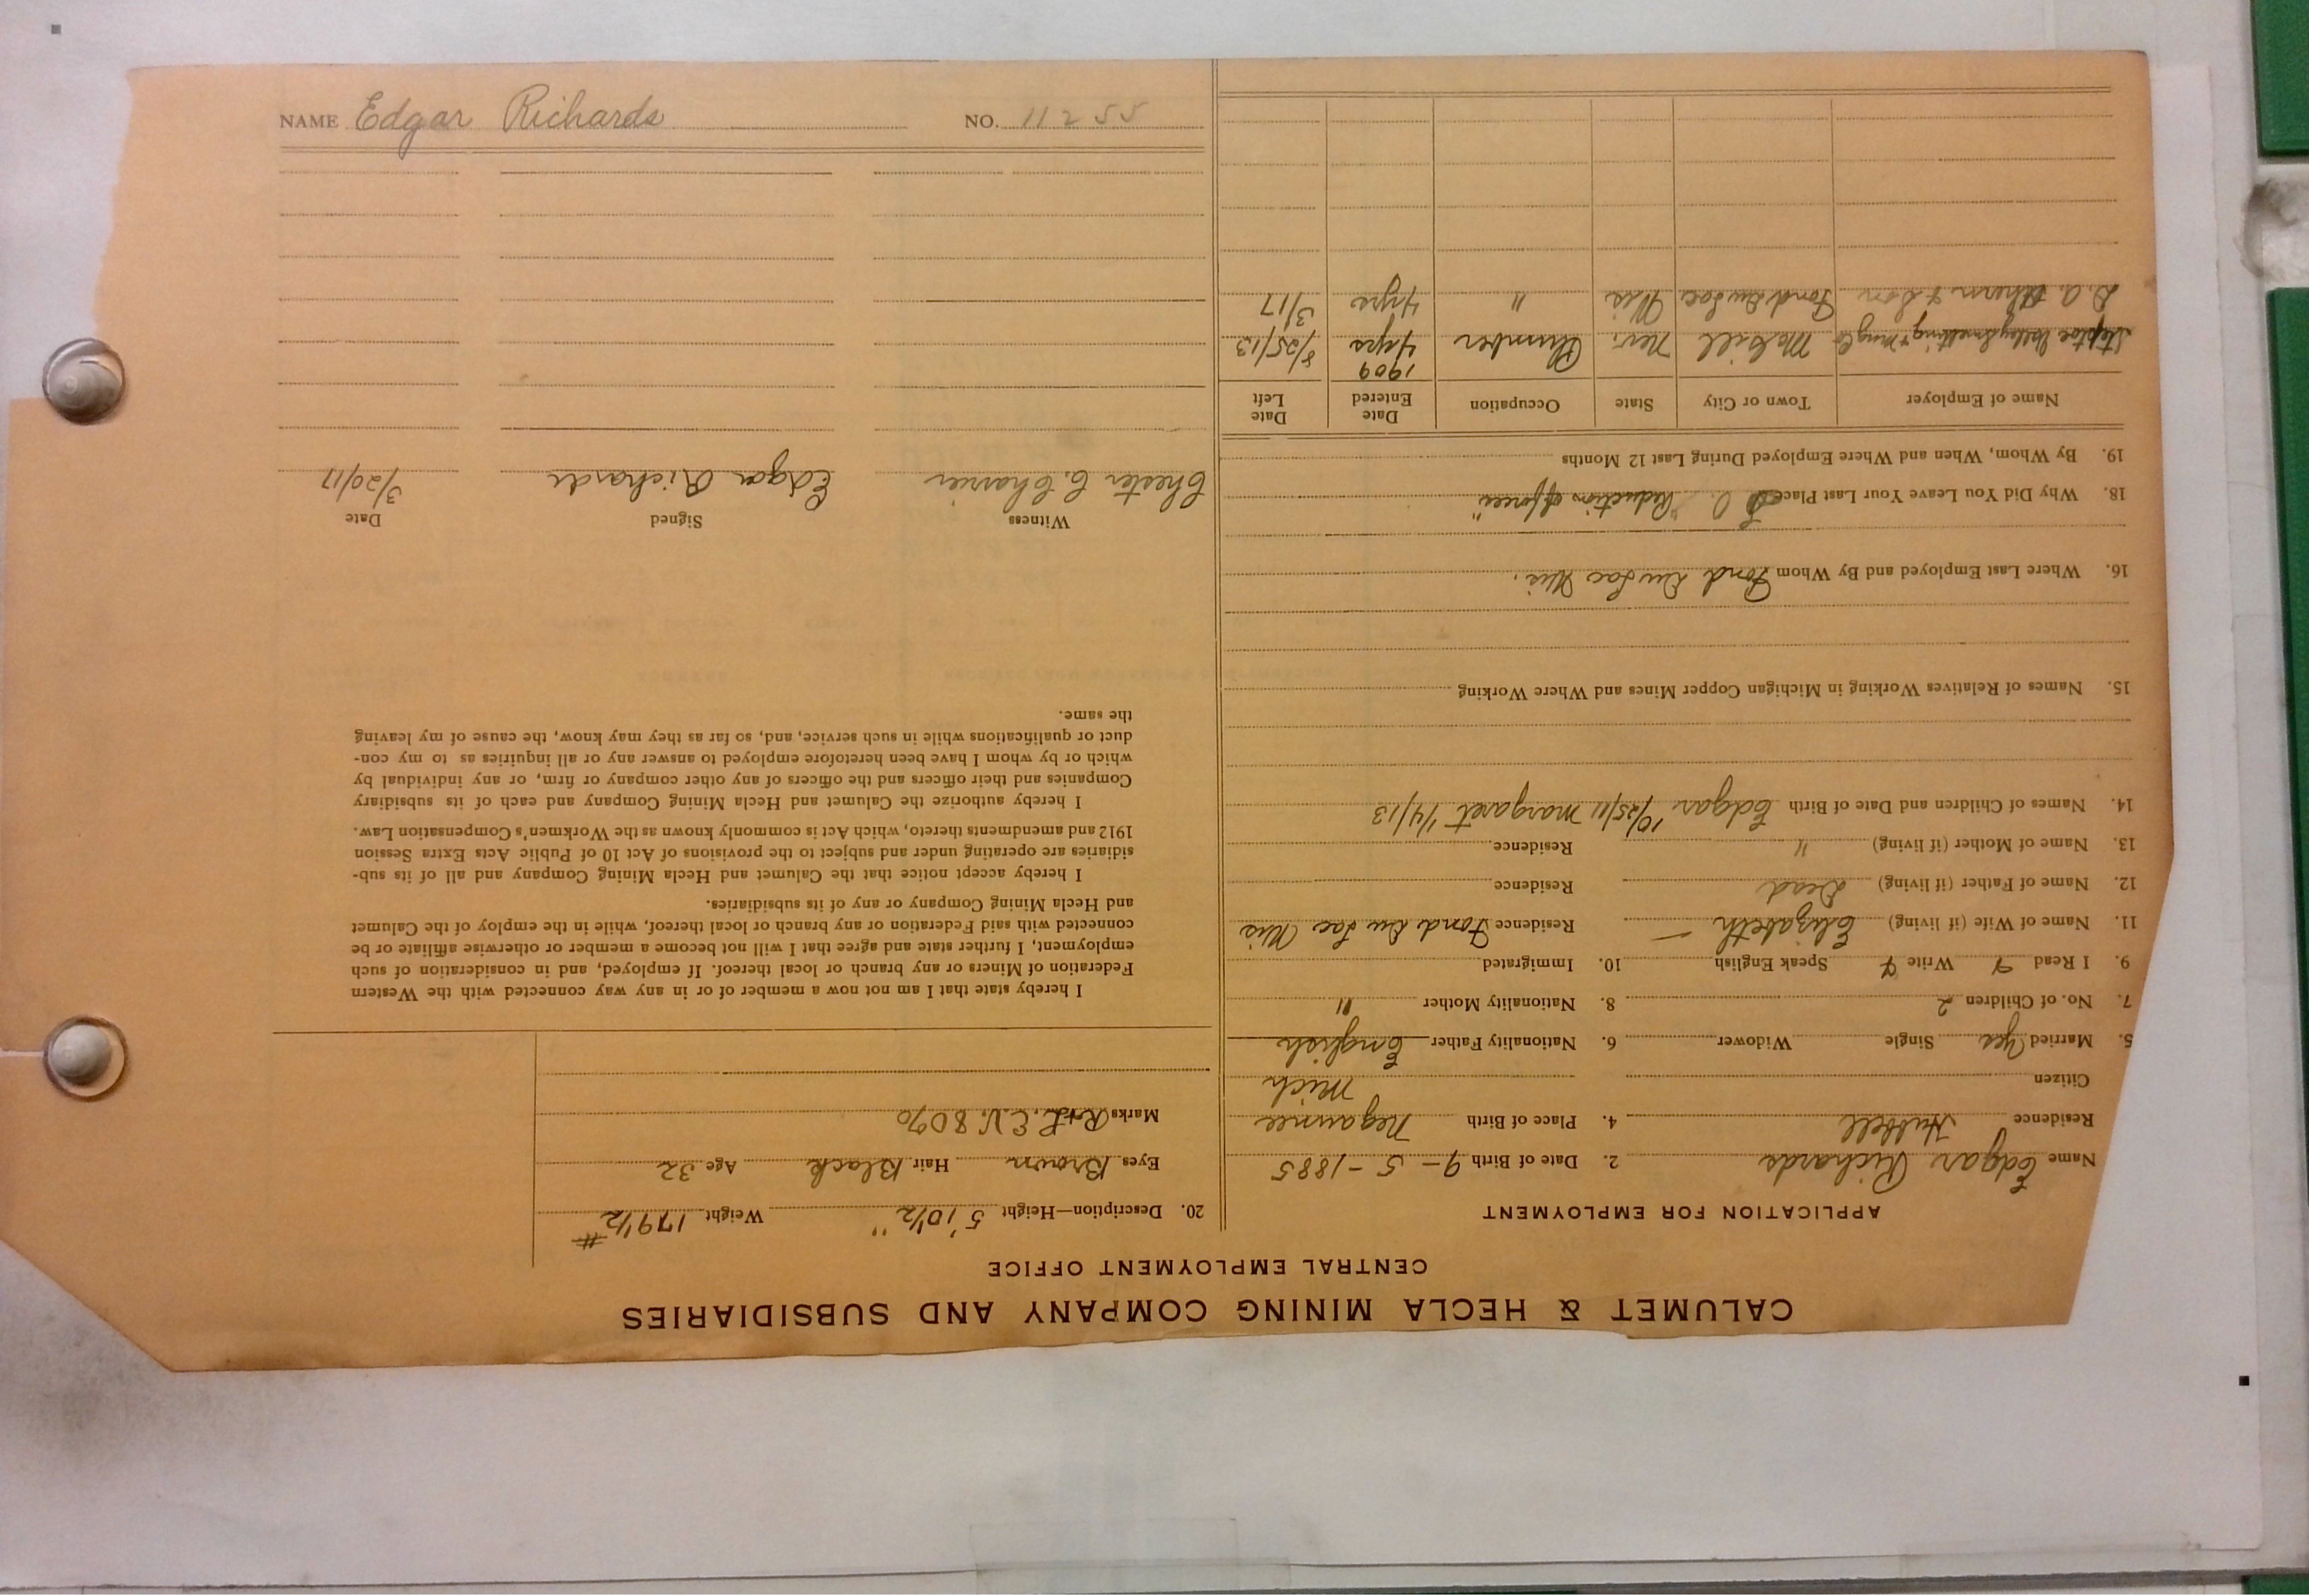 NAME Edgar Richards NO. 11255
CALUMET & HECLA MINING COMPANY AND SUBSIDIARIES
CENTRAL EMPLOYMENT OFFICE
APPLICATION FOR EMPLOYMENT
Name Edgar Richards 2. Date of Birth 9 - 5 - 1885
Residence Hubbell 4. Place of Birth Negaunee
Citizen Mich
5. Married Yes Single Widower 6. Nationality Father English
7. No. of Children 2 8. Nationality Mother "
9. I Read Write Speak English 10. Immigrated
11. Name of Wife (if living) Elizabeth - Residence Fond Du Lac Wis
12. Name of Father (if living) Dead Residence
13. Name of Mother (if living) " Residence
14. Names of Children and Date of Birth Edgar 10/25/11 Margaret 1/4/13
15. Names of Relatives Working in Michigan Copper Mines and Where Working
16. Where Last Employed and By Whom Fond Du Lac Wis.
18. Why Did You Leave Your Last Place "Reduction of forces"
19. By Whom, When and Where Employed During Last 12 Months
Name of Employer Town or City State Occupation Date Entered Date Left
1909
Steptoe Valley Smelting & Mng Co McGill Nev. Plumber 4 yrs 8/25/13
D. A. & Son Fond Du Lac Wis " 4 yrs 3/17
20. Description—Height 5' 10 1/2" Weight 179 1/2 #
Eyes Brown Hair Black Age 32
Marks R & L. E. V. 80%
I hereby state that I am not now a member of or in any way connected with the Western
Federation of Miners or any branch or local thereof. If employed, and in consideration of such
employment, I further state and agree that I will not become a member or otherwise affiliate or be
connected with said Federation or any branch or local thereof, while in the employ of the Calumet
and Hecla Mining Company or any of its subsidiaries.
I hereby accept notice that the Calumet and Hecla Mining Company and all of its sub-
sidiaries are operating under and subject to the provisions of Act 10 of Public Acts Extra Session
1912 and amendments thereto, which Act is commonly known as the Workmen's Compensation Law.
I hereby authorize the Calumet and Hecla Mining Company and each of its subsidiary
Companies and their officers and the officers of any other company or firm, or any individual by
which or by whom I have been heretofore employed to answer any or all inquiries as to my con-
duct or qualifications while in such service, and, so far as they may know, the cause of my leaving
the same.
Witness Signed Date
Chester C. Edgar Richards 3/20/17